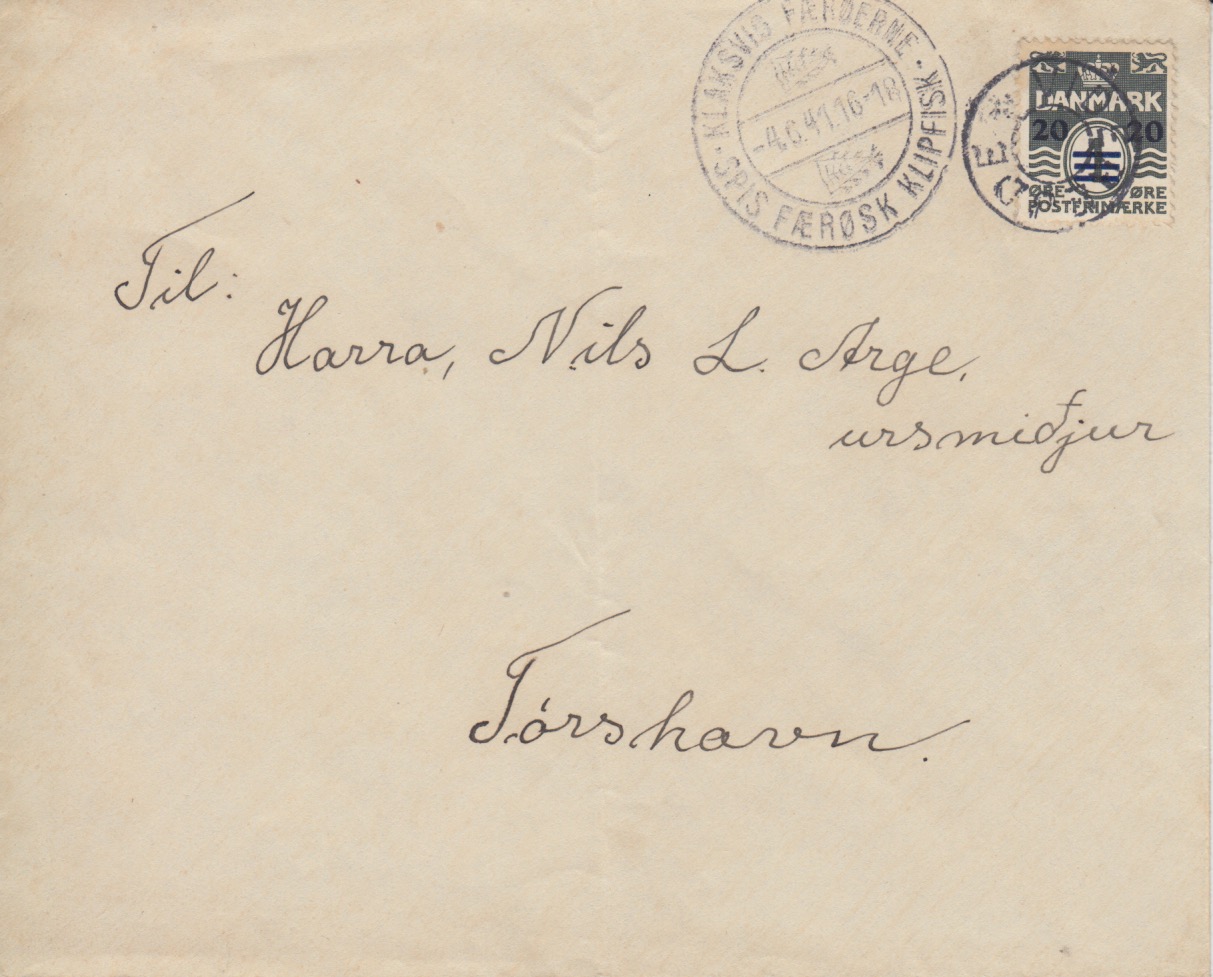 KLAKSVIG FÆRØERNE · SPIS FÆRØSK KLIPFISK ·
-4.6.41.16-18
DANMARK
20 20
ØRE ØRE
POSTFRIMÆRKE
Til:
Harra, Nils L. Arge,
ursmiðjur
Tórshavn.